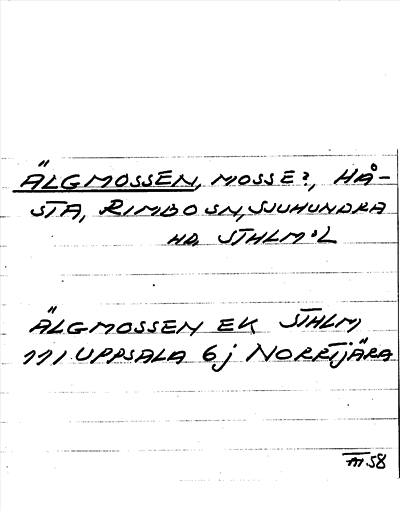 ÄLGMOSSEN, MOSSE?, HÅ-
STA, RIMBO SN, SJUHUNDRA
HD, STHLM:L
ÄLGMOSSEN EK STHLM
111 UPPSALA 6j NORRTJÄRA
58